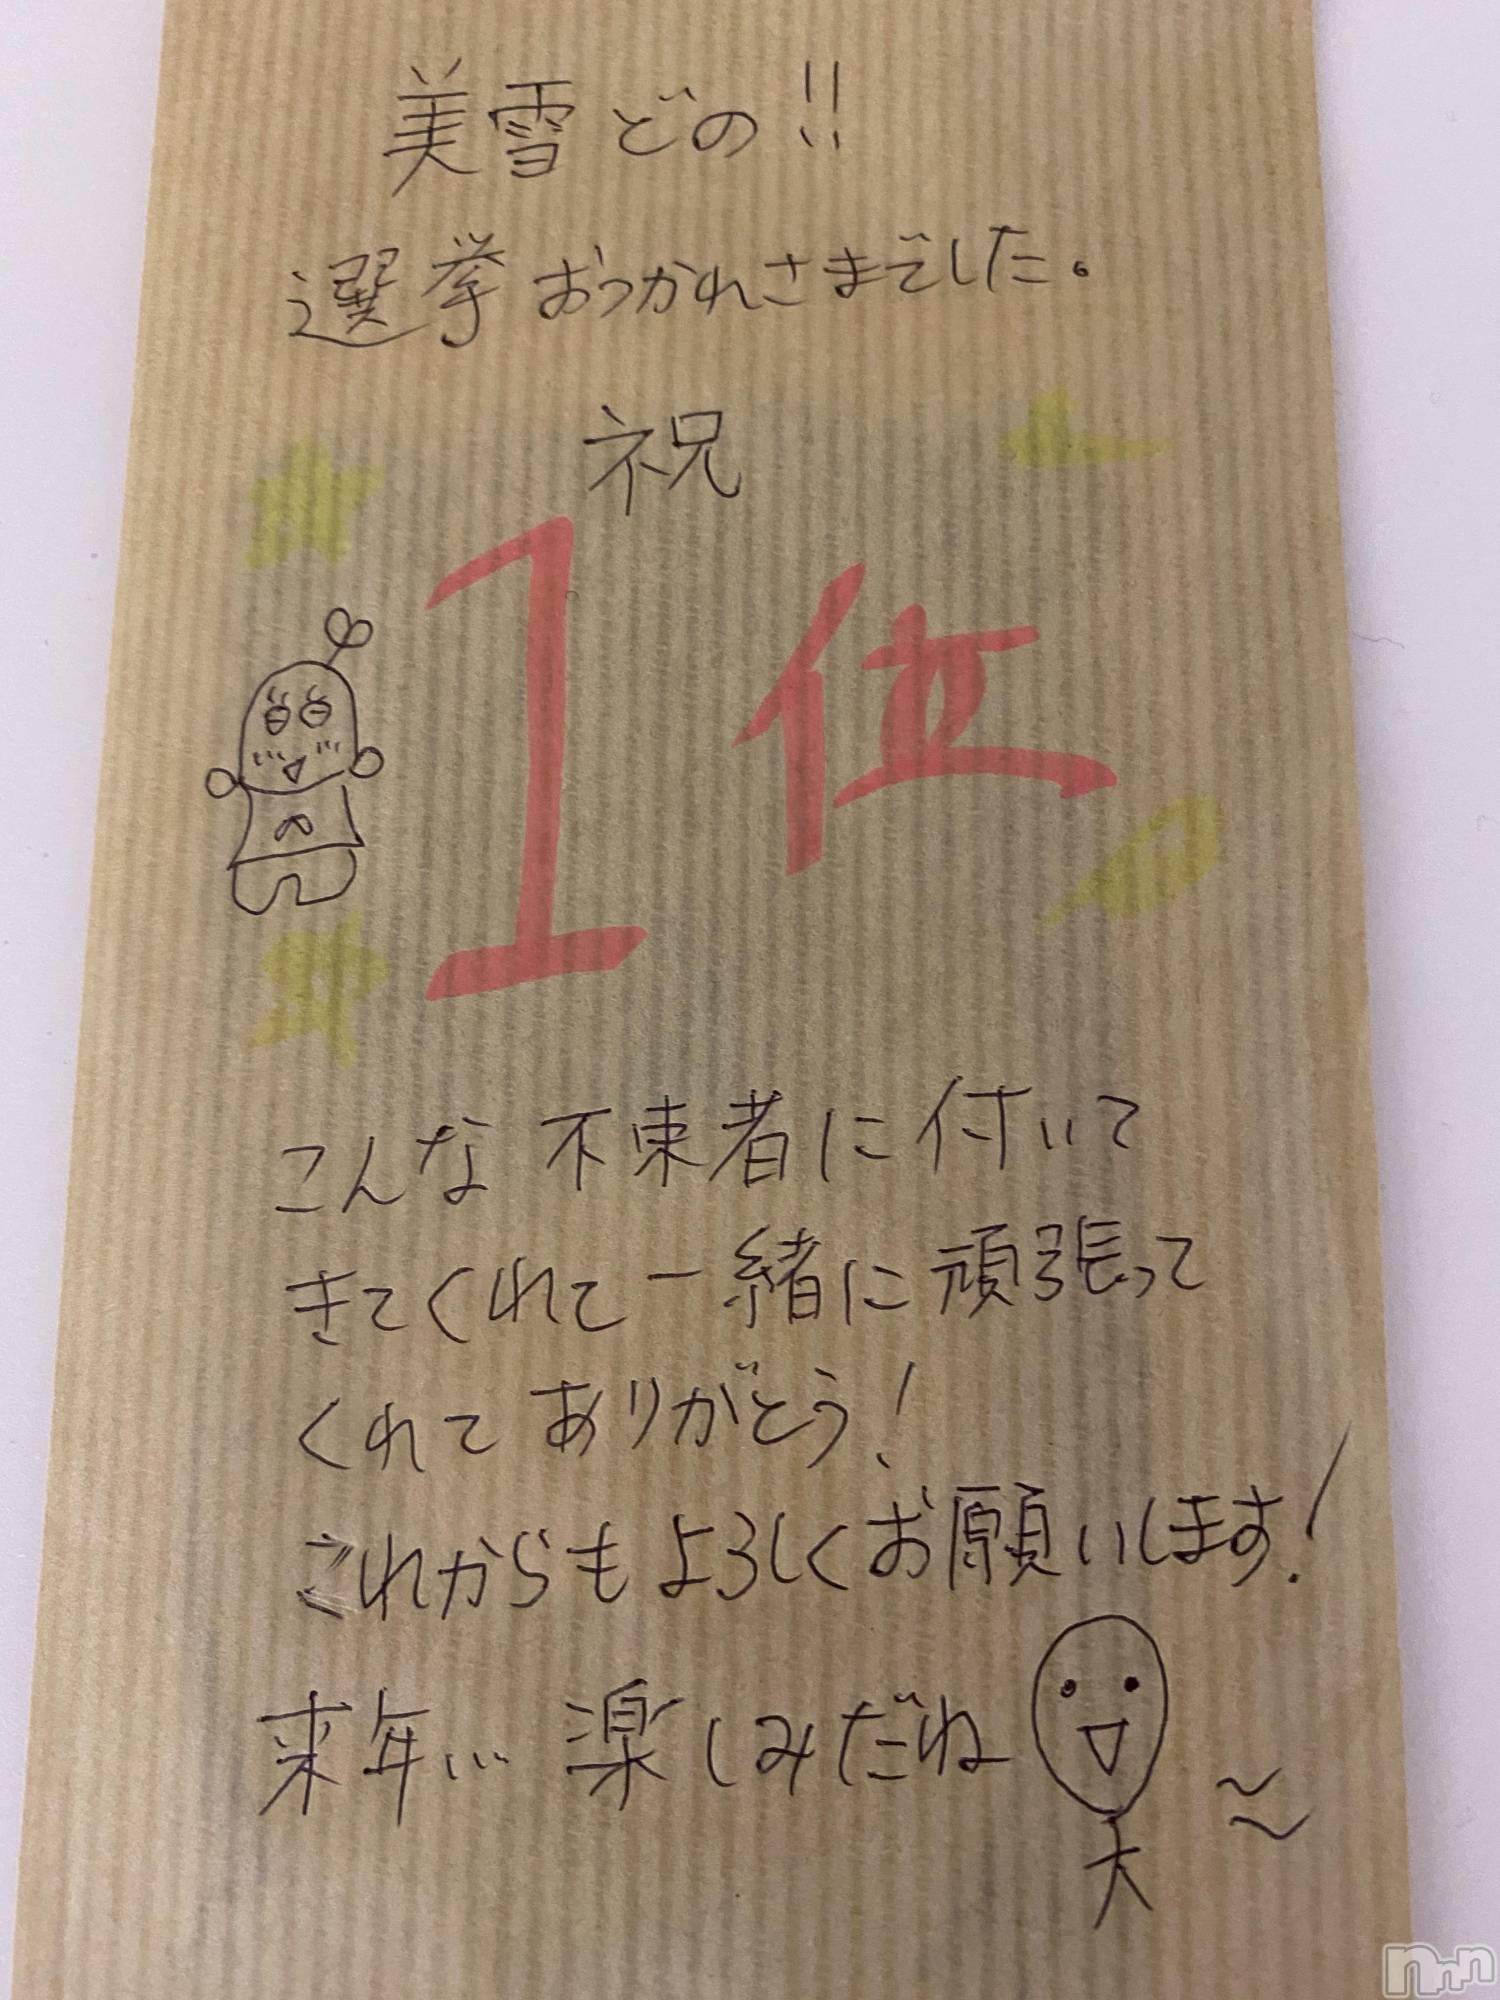 美雪どの!!
選挙おつかれさまでした。
祝
1位
こんな不束者に付いて
きてくれて一緒に頑張って
くれてありがとう!
これからもよろしくお願いします!
来年… 楽しみだね
nnn